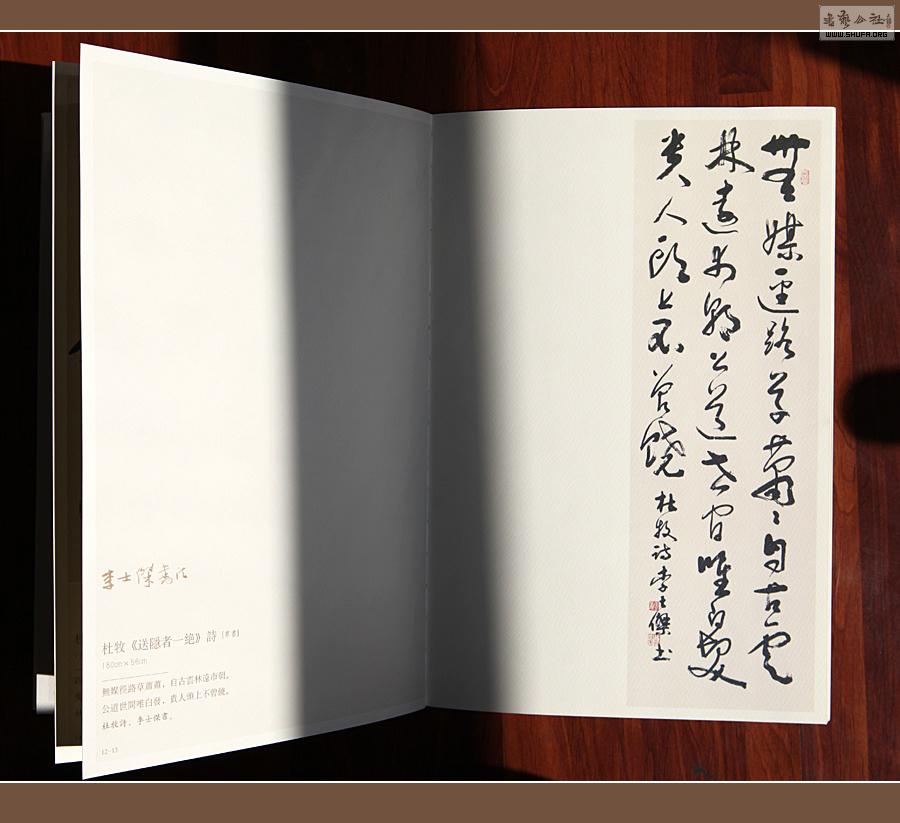 書藝公社
WWW.SHUFA.ORG
李士傑書法
杜牧《送隱者一绝》詩［草書］
180cm×56cm
無媒徑路草蕭蕭，自古雲林遠市朝。
公道世間唯白發，貴人頭上不曾饒。
杜牧詩，李士傑書。
12-13
無媒逕路草蕭〻自古雲
林遠市朝公道世間唯白髮
貴人頭上不曾饒 杜牧詩 李士傑書